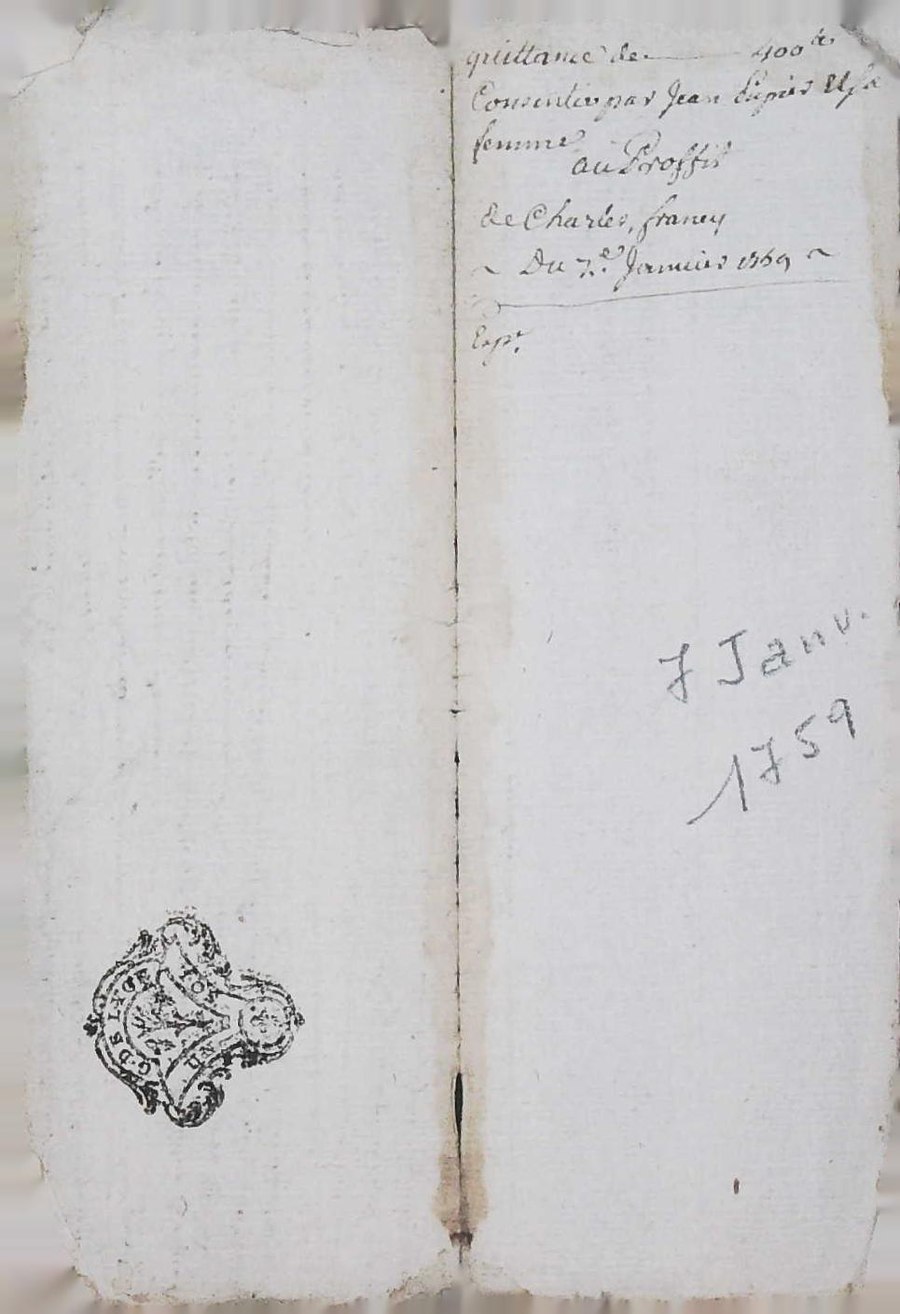 quittance de 400ᵗᵗ
Consentie par Jean Dupuis Et sa
femme
au Proffit
de Charles, francy
~ Du 7.ᵉ Janvier 1759 ~
Exp.ⁿ
7 Janv.
1759
G. DE LYON
UN SOL